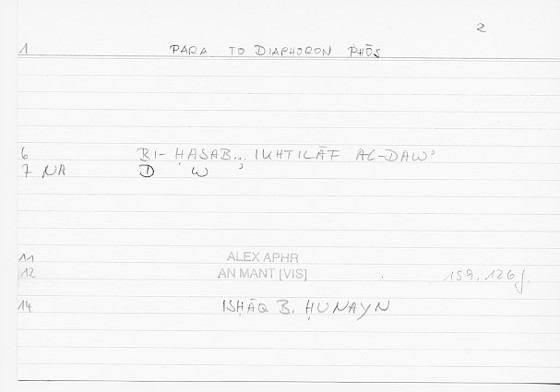 2
1 PARA TO DIAPHORON PHŌS
6 BI-ḤASAB.. IKHTILĀF AL-ḌAWʾ
7 NA Ḍ W ʾ
11 ALEX APHR
12 AN MANT [VIS] 159, 126f.
14 ISḤĀQ B. ḤUNAYN